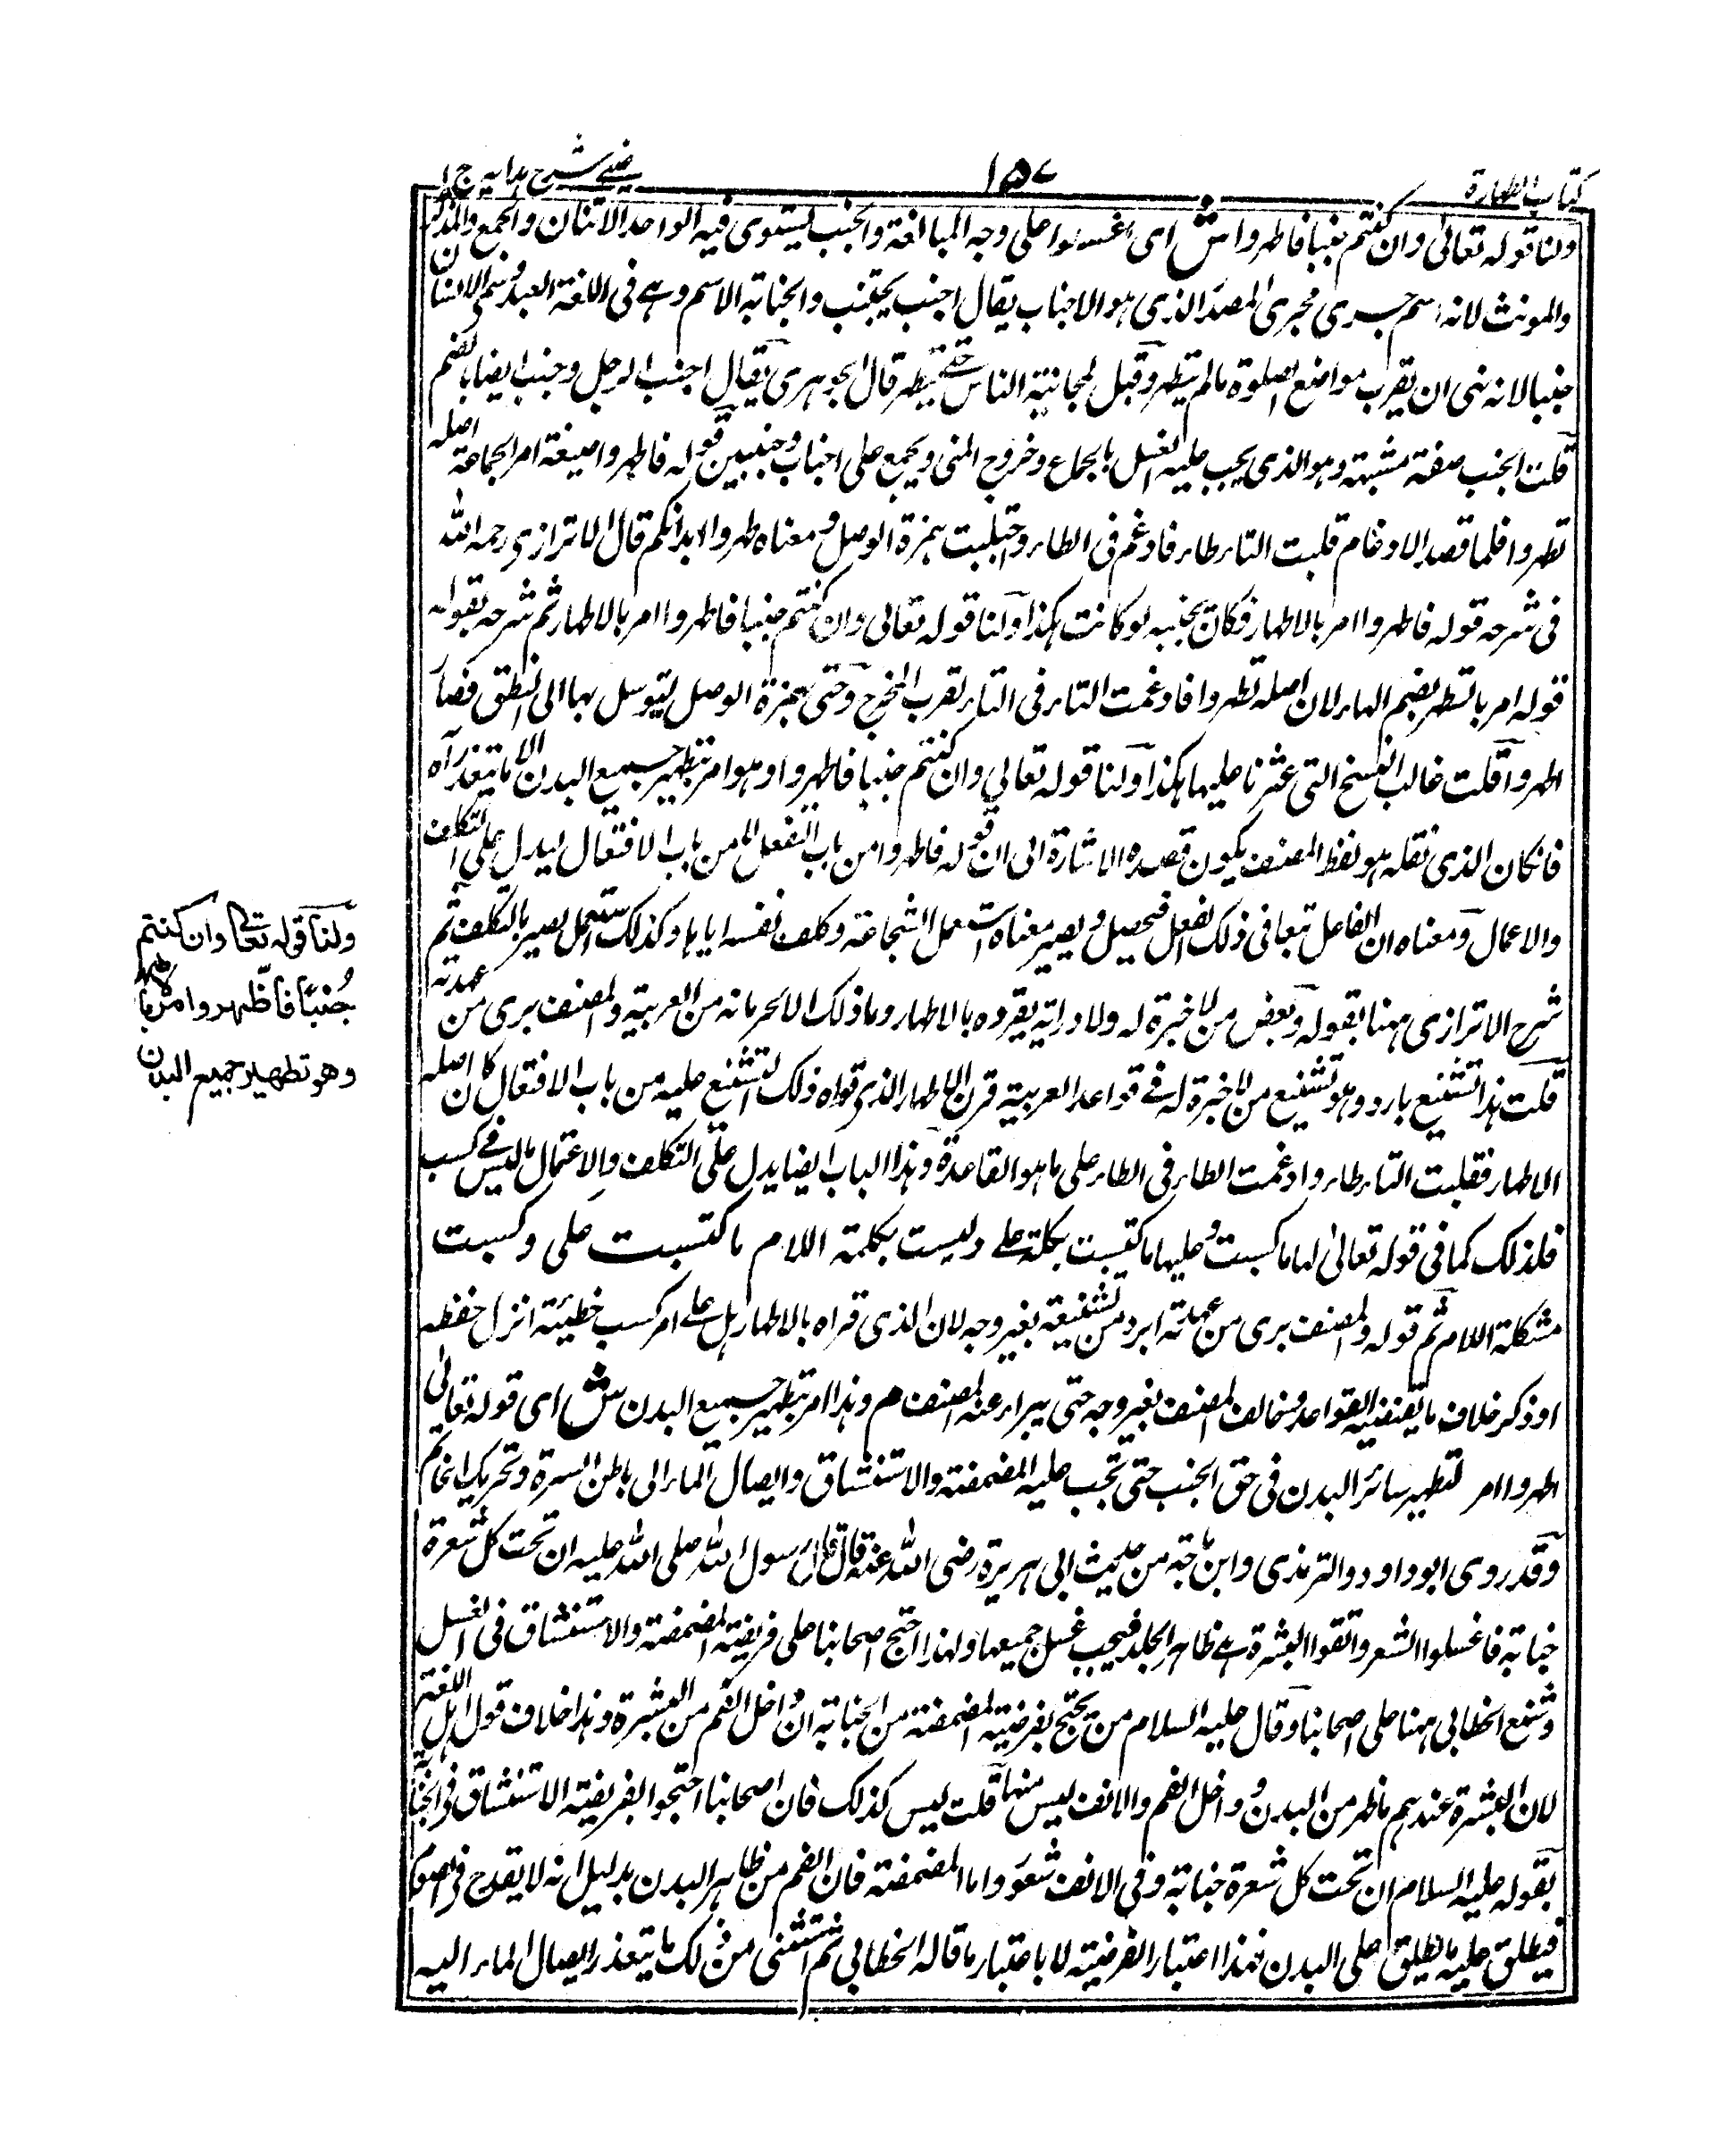 كتاب الطهارة
١٥٧
عيني شرح هدايه ج ١
ولنا قوله تعالى وان كنتم جنبا فاطهروا ش اى اغسلوا على وجه المبالغة والجنب يستوى فيه الواحد الاثنان والجمع والمذكر
والمونث لانه اسم جرى مجرى المصدر الذى هو الاجناب يقال اجنب يجتنب والجنابة الاسم وهے فى اللغة البعد وسمى الانسان
جنبا لانه نهى ان يقرب مواضع الصلوة مالم يتطهر وقيل لمجانبة الناس حتے يتطهر قال الجوهرى يقال اجنب الرجل وجنب ايضا بالضم
قلت الجنب صفة مشبهة وهو الذى يجب عليه الغسل بالجماع وخروج المنى ويجمع على اجناب وجنبين قوله فاطهروا صيغة امر الجماعة اصله
تطهروا فلما قصد الادغام قلبت التاء طاء فادغم فى الطاء واجتلبت همزة الوصل ومعناه طهروا ابدانكم قال الاترازى رحمه الله
فى شرحه قوله فاطهروا امر بالاطهار فكان بخنبه لو كانت هكذا ولنا قوله تعالى وان كنتم جنبا فاطهروا امر بالاطهار ثم شرحه بقوله
قوله امر بالتطهر بضم الهاء لان اصله تطهروا فادغمت التاء فى التاء لقرب المخرج وحتى بهمزة الوصل ليتوسل بها الى النطق فصار
اطهروا قلت غالب النسخ التى عثرنا عليها هكذا ولنا قوله تعالي وان كنتم جنبا فاطهروا وهو امر بتطهير جميع البدن الا ما يتعذر اه
فان كان الذى نقله هو لفظ المصنف يكون قصده الاشارة الى ان قوله فاطهروا من باب التفعل لا من باب الافتعال ليدل على التكلف
والاعمال ومعناه ان الفاعل تبعا فى ذلك الفعل فيحصل ويصير معناه استعمل الشجاعة وكلف نفسه اياها وكذلك استعمل يصير بالتكلف ثم
شرح الاترازى ههنا بقوله وبعض من لا خبرة له ولا دراية يقروه بالاطهار وما ذلك الا لحرمانه من العربية والمصنف برى من عهدته
قلت هذا تشنيع بارد وهو تشنيع من لا خبرة له فے قواعد العربية قرن الاطهار الذى قواه ذلك لتشنيع عليه من باب الافتعال كان اصله
الاطهار فقلبت التاء طاء وادغمت الطاء فى الطاء على ما هو القاعدة وهذا الباب ايضا يدل على التكلف والاعتمال ما ليس فے كسب
فلذلك كما فى قوله تعالى لها ما كسبت وعليها ما كتسبت بكلمة على وليست بكلمة اللام ما كتسبت على وكسبت
مشكلة اللام ثم قوله والمصنف برى من عهدته ابرد من تشنيعه بغير وجه لان الذى قراه بالاطهار بل على امر كسب خطيئة انزل حفظه
او ذكر خلاف ما يقتضيه القواعد ومخالف المصنف بغير وجه حتى يبراء عنه المصنف م وهذا امر بتطهير جميع البدن ش اى قوله تعالى
اطهروا امر لتطهير سائر البدن فى حق الجنب حتى تجب عليه المضمضة والاستنشاق وايصال الماء الى باطن السرة وتحريك الخاتم
وقد روى ابو داود والترمذى وابن ماجة من حديث ابى هريرة رضى الله عنه قال قال رسول الله صلى الله عليه ان تحت كل شعرة
جنابة فاغسلوا الشعر واتقوا البشرة هے ظاهر الجلد فيجب غسل جميعها ولهذا احتج اصحابنا على فريضة المضمضة والاستنشاق فى الغسل
وشنع الخطابى ههنا على اصحابنا وقال عليه السلام من يحتج بفرضية المضمضة من الجنابة ان داخل الفم من البشرة وهذا خلاف قول اهل اللغة
لان البشرة عندهم ما ظهر من البدن وداخل الفم والانف ليس منها قلت ليس كذلك فان اصحابنا احتجوا بفريضة الاستنشاق فى الجنابة
بقوله عليه السلام ان تحت كل شعرة جنابة وفى الانف شعور واما المضمضة فان الفم من ظاهر البدن بدليل انه لا يقدح فى الصوم
فيطلق عليه ما يطلق على البدن فهذا اعتبار الفرضية لا باعتبار ما قاله الخطابى ثم استثنى من ذلك ما يتعذر ايصال الماء اليه
ولنا قوله تعالى وان كنتم
جُنبًا فاطّهروا امر بالاطهار
وهو تطهير جميع البدن